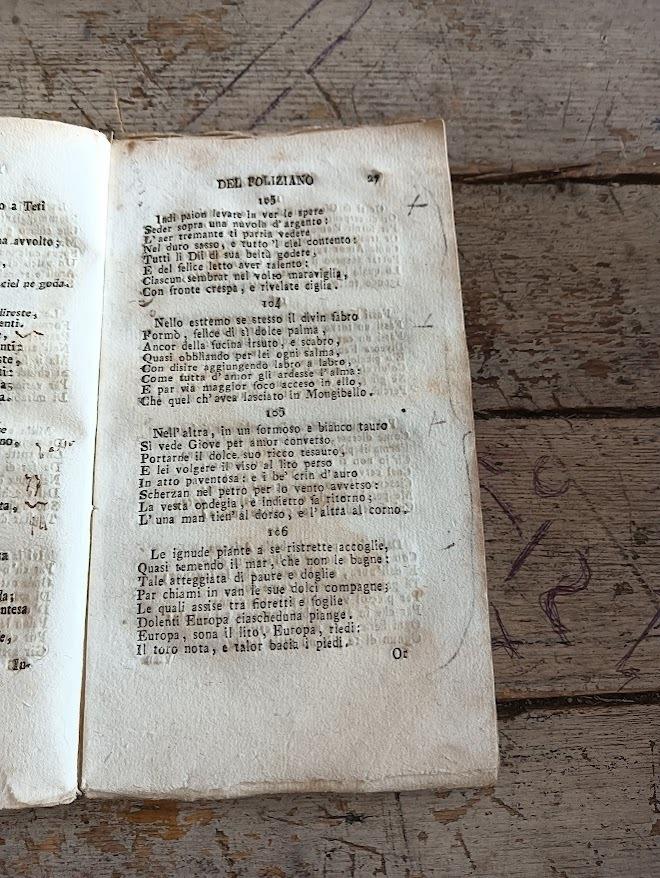 o a Teti
a avvolto;
ciel ne goda.
direste,
enti.
nti:
ste,
ti:
no,
ta,
la;
ntesa
e,
In-
DEL POLIZIANO 27
103
Indi paion levare in ver le spere
Seder sopra una nuvola d'argento:
L'aer tremante ti parria vedere
Nel duro sasso, e tutto 'l ciel contento:
Tutti li Dii di sua beltà godere,
E del felice letto aver talento:
Ciascun sembrar nel volto maraviglia,
Con fronte crespa, e rivelate ciglia.
104
Nello estremo se stesso il divin fabro
Formò, felice di sì dolce palma,
Ancor della fucina irsuto, e scabro,
Quasi obbliando per lei ogni salma,
Con disire aggiungendo labro a labro,
Come tutta d'amor gli ardesse l'alma:
E par via maggior foco acceso in ello,
Che quel ch'avea lasciato in Mongibello.
105
Nell'altra, in un formoso e bianco tauro
Si vede Giove per amor converso
Portarne il dolce suo ricco tesauro,
E lei volgere il viso al lito perso
In atto paventosa: e i be' crin d'auro
Scherzan nel petto per lo vento avverso:
La vesta ondegia, e indietto fa ritorno;
L'una man tien' al dorso, e l'altra al corno.
106
Le ignude piante a se ristrette accoglie,
Quasi temendo il mar, che non le bagne:
Tale atteggiata di paure e doglie
Par chiami in van le sue dolci compagne;
Le quali assise tra fioretti e foglie
Dolenti Europa ciascheduna piange.
Europa, sona il lito, Europa, riedi:
Il toro nota, e talor bacia i piedi.
Or